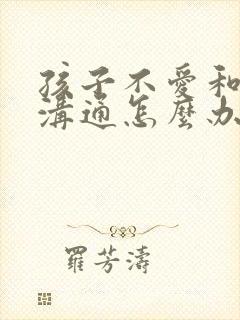 孩子不愛和
溝通怎麼办
羅芳濤